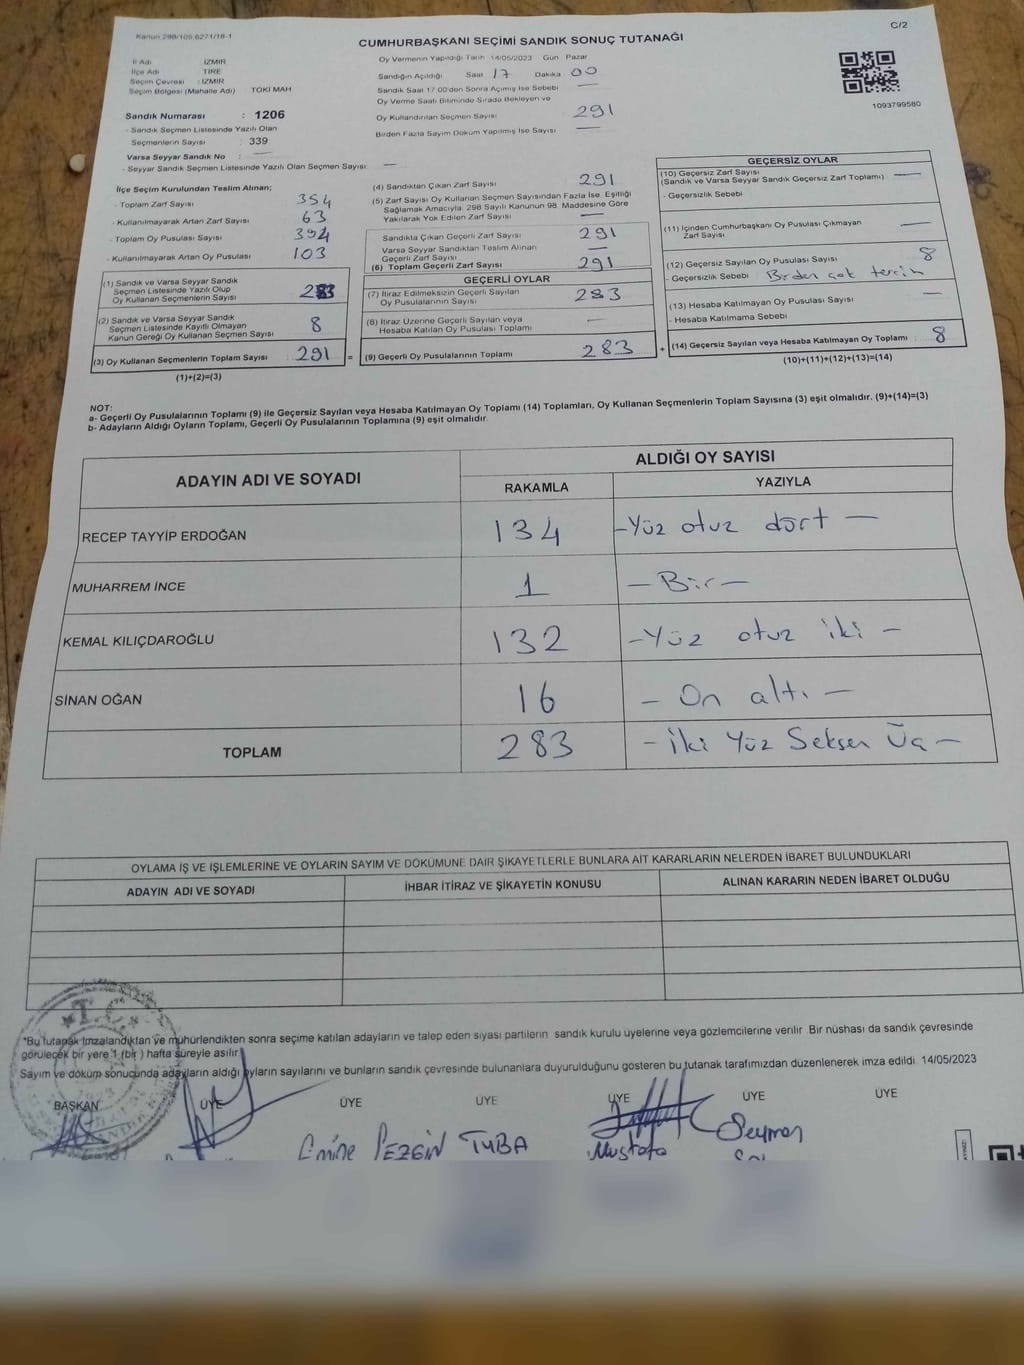 Kanun 298/105 6271/18-1
C/2
CUMHURBAŞKANI SEÇİMİ SANDIK SONUÇ TUTANAĞI
İl Adı İZMİR
İlçe Adı TİRE
Seçim Çevresi : İZMİR
Seçim Bölgesi (Mahalle Adı) TOKİ MAH
Sandık Numarası : 1206
- Sandık Seçmen Listesinde Yazılı Olan
Seçmenlerin Sayısı : 339
Varsa Seyyar Sandık No : —
- Seyyar Sandık Seçmen Listesinde Yazılı Olan Seçmen Sayısı: —
Oy Vermenin Yapıldığı Tarih 14/05/2023 Gün Pazar
Sandığın Açıldığı Saat 17 Dakika 00
Sandık Saat 17:00'den Sonra Açımış İse Sebebi —
Oy Verme Saati Bitiminde Sırada Bekleyen ve
Oy Kullandırılan Seçmen Sayısı 291
Birden Fazla Sayım Döküm Yapılmış İse Sayısı —
1093799580
İlçe Seçim Kurulundan Teslim Alınan;
- Toplam Zarf Sayısı 354
- Kullanılmayarak Artan Zarf Sayısı 63
- Toplam Oy Pusulası Sayısı 394
- Kullanılmayarak Artan Oy Pusulası 103
(1) Sandık ve Varsa Seyyar Sandık
Seçmen Listesinde Yazılı Olup
Oy Kullanan Seçmenlerin Sayısı 283
(2) Sandık ve Varsa Seyyar Sandık
Seçmen Listesinde Kayıtlı Olmayan
Kanun Gereği Oy Kullanan Seçmen Sayısı 8
(3) Oy Kullanan Seçmenlerin Toplam Sayısı 291 =
(1)+(2)=(3)
(4) Sandıktan Çıkan Zarf Sayısı 291
(5) Zarf Sayısı Oy Kullanan Seçmen Sayısından Fazla İse, Eşitliği
Sağlamak Amacıyla, 298 Sayılı Kanunun 98. Maddesine Göre
Yakılarak Yok Edilen Zarf Sayısı —
Sandıkta Çıkan Geçerli Zarf Sayısı 291
Varsa Seyyar Sandıktan Teslim Alınan
Geçerli Zarf Sayısı —
(6) Toplam Geçerli Zarf Sayısı 291
GEÇERLİ OYLAR
(7) İtiraz Edilmeksizin Geçerli Sayılan
Oy Pusulalarının Sayısı 283
(8) İtiraz Üzerine Geçerli Sayılan veya
Hesaba Katılan Oy Pusulası Toplamı —
(9) Geçerli Oy Pusulalarının Toplamı 283 +
GEÇERSİZ OYLAR
(10) Geçersiz Zarf Sayısı
(Sandık ve Varsa Seyyar Sandık Geçersiz Zarf Toplamı) —
- Geçersizlik Sebebi
(11) İçinden Cumhurbaşkanı Oy Pusulası Çıkmayan
Zarf Sayısı —
(12) Geçersiz Sayılan Oy Pusulası Sayısı 8
- Geçersizlik Sebebi Birden çok tercih
(13) Hesaba Katılmayan Oy Pusulası Sayısı —
- Hesaba Katılmama Sebebi
(14) Geçersiz Sayılan veya Hesaba Katılmayan Oy Toplamı : 8
(10)+(11)+(12)+(13)=(14)
NOT:
a- Geçerli Oy Pusulalarının Toplamı (9) ile Geçersiz Sayılan veya Hesaba Katılmayan Oy Toplamı (14) Toplamları, Oy Kullanan Seçmenlerin Toplam Sayısına (3) eşit olmalıdır. (9)+(14)=(3)
b- Adayların Aldığı Oyların Toplamı, Geçerli Oy Pusulalarının Toplamına (9) eşit olmalıdır.
ADAYIN ADI VE SOYADI
ALDIĞI OY SAYISI
RAKAMLA YAZIYLA
RECEP TAYYİP ERDOĞAN 134 -Yüz otuz dört —
MUHARREM İNCE 1 — Bir —
KEMAL KILIÇDAROĞLU 132 -Yüz otuz iki -
SİNAN OĞAN 16 - On altı -
TOPLAM 283 - İki Yüz Seksen Üç -
OYLAMA İŞ VE İŞLEMLERİNE VE OYLARIN SAYIM VE DÖKÜMÜNE DAİR ŞİKAYETLERLE BUNLARA AİT KARARLARIN NELERDEN İBARET BULUNDUKLARI
ADAYIN ADI VE SOYADI İHBAR İTİRAZ VE ŞİKAYETİN KONUSU ALINAN KARARIN NEDEN İBARET OLDUĞU
T.C.
*Bu tutanak İmzalandıktan ve mühürlendikten sonra seçime katılan adayların ve talep eden siyasi partilerin sandık kurulu üyelerine veya gözlemcilerine verilir. Bir nüshası da sandık çevresinde
görülecek bir yere 1 (bir) hafta süreyle asılır.
Sayım ve döküm sonucunda adayların aldığı oyların sayılarını ve bunların sandık çevresinde bulunanlara duyurulduğunu gösteren bu tutanak tarafımızdan düzenlenerek imza edildi. 14/05/2023
BAŞKAN ÜYE ÜYE ÜYE ÜYE ÜYE ÜYE
Emine PEZGİN TUBA Mustafa Seymen